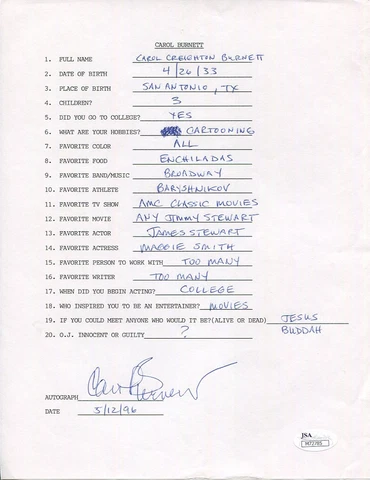 CAROL BURNETT
1. FULL NAME CAROL CREIGHTON BURNETT
2. DATE OF BIRTH 4/26/33
3. PLACE OF BIRTH SAN ANTONIO, TX
4. CHILDREN? 3
5. DID YOU GO TO COLLEGE? YES
6. WHAT ARE YOUR HOBBIES? CARTOONING
7. FAVORITE COLOR ALL
8. FAVORITE FOOD ENCHILADAS
9. FAVORITE BAND/MUSIC BROADWAY
10. FAVORITE ATHLETE BARYSHNIKOV
11. FAVORITE TV SHOW AMC CLASSIC MOVIES
12. FAVORITE MOVIE ANY JIMMY STEWART
13. FAVORITE ACTOR JAMES STEWART
14. FAVORITE ACTRESS MAGGIE SMITH
15. FAVORITE PERSON TO WORK WITH TOO MANY
16. FAVORITE WRITER TOO MANY
17. WHEN DID YOU BEGIN ACTING? COLLEGE
18. WHO INSPIRED YOU TO BE AN ENTERTAINER? MOVIES
19. IF YOU COULD MEET ANYONE WHO WOULD IT BE?(ALIVE OR DEAD) JESUS
BUDDAH
20. O.J. INNOCENT OR GUILTY ?
AUTOGRAPH Carol Burnett
DATE 5/12/96
JSA